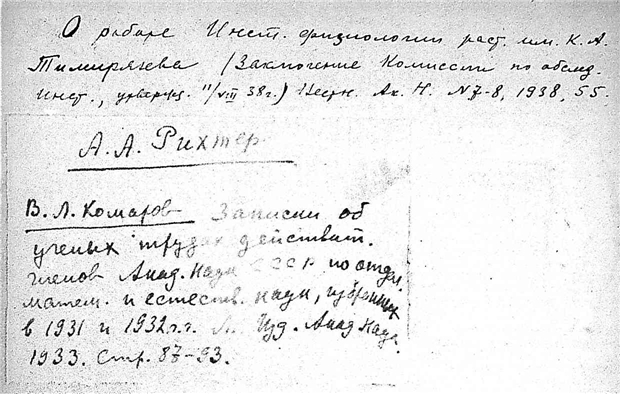 О работе Инст. физиологии раст. им. К. А.
Тимирязева (Заключение Комиссии по обслед.
Инст., утвержд. 11/VIII 38 г.) Вестн. Ак. Н. N7-8, 1938, 55.
А. А. Рихтер
В. Л. Комаров Записки об
ученых трудах действит.
членов Акад. Наук СССР по отдел.
матем. и естеств. наук, избранных
в 1931 и 1932 г.г. Л. Изд. Акад Наук
1933. Стр. 87-93.